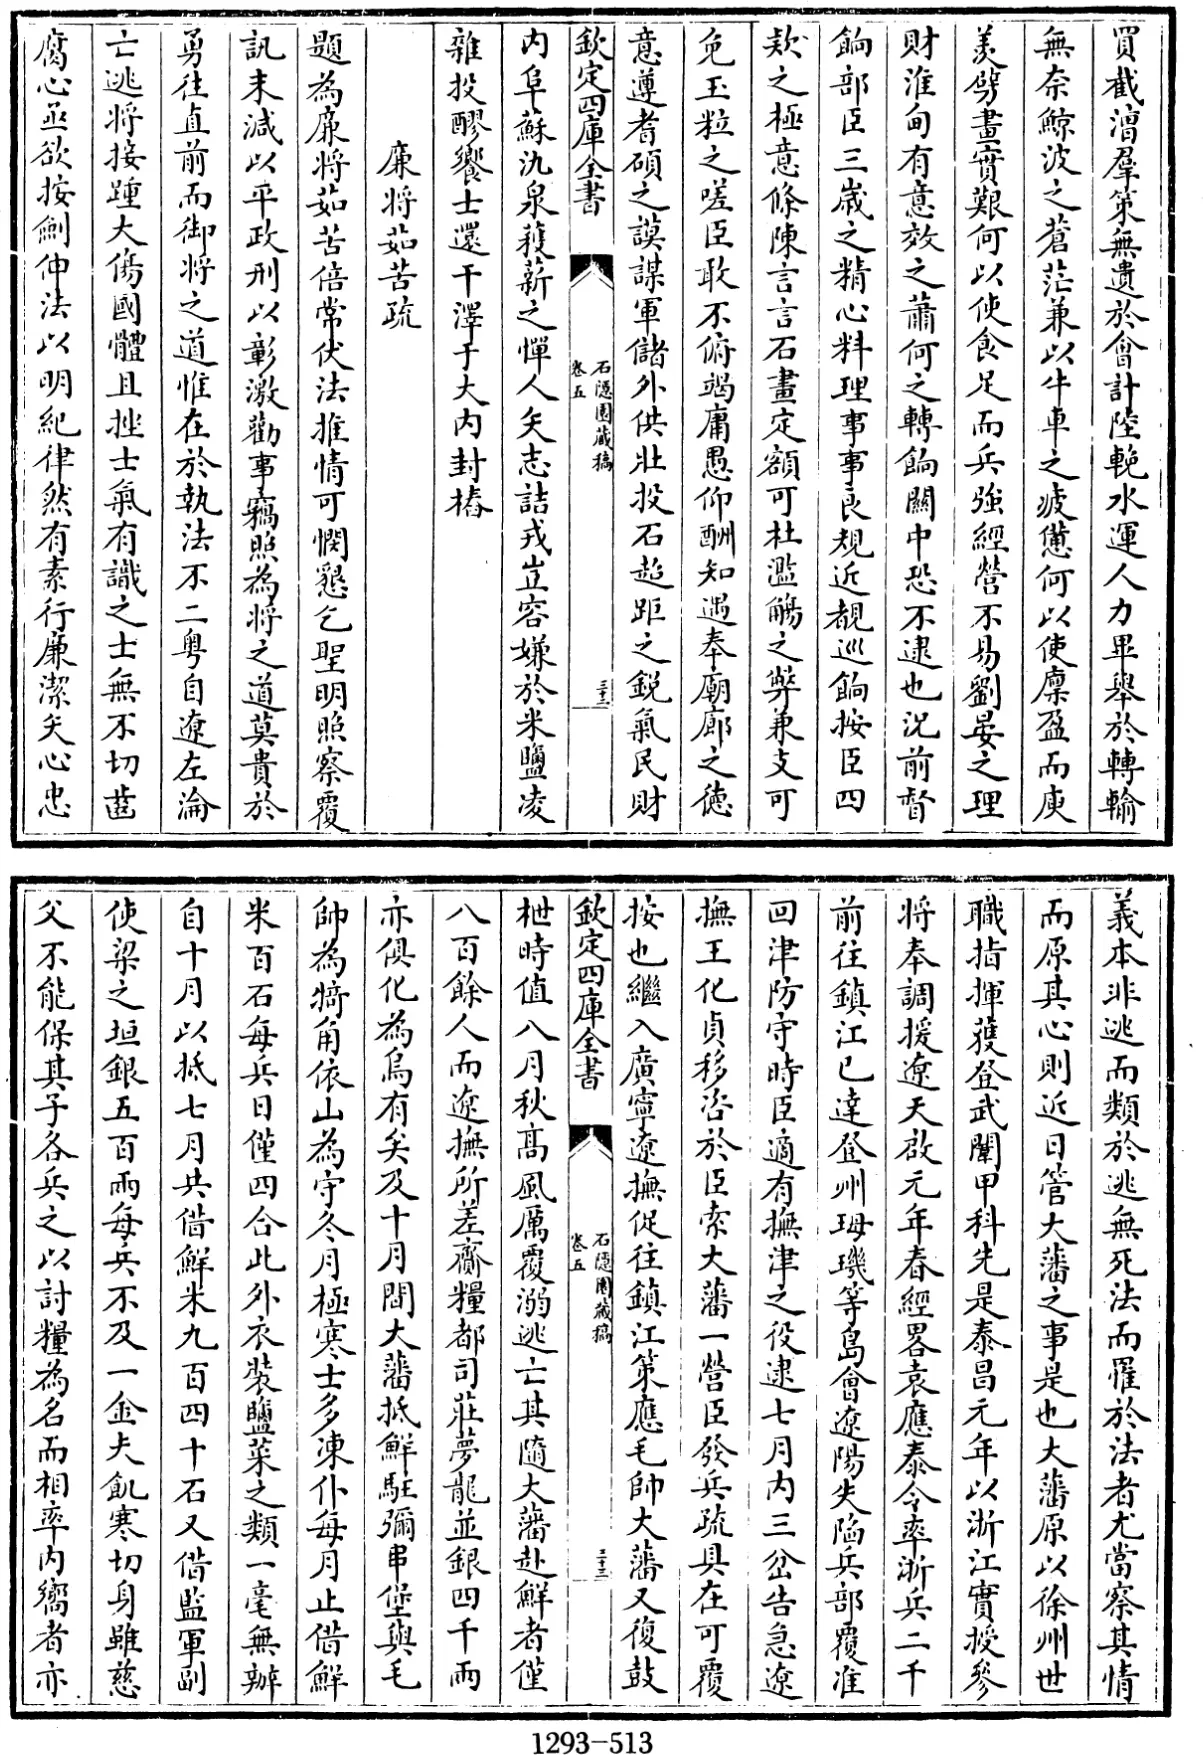 買截漕羣策無遺於會計陸輓水運人力畢舉於轉輸
無奈鯨波之蒼茫兼以牛車之疲憊何以使廪盈而庾
羙劈畫實艱何以使食足而兵強經營不易劉晏之理
財淮甸有意效之蕭何之轉餉關中恐不逮也況前督
餉部臣三歲之精心料理事事良規近覩巡餉按臣四
欵之極意條陳言言石畫定額可杜濫觴之弊兼支可
免玉粒之嗟臣敢不俯竭庸愚仰酬知遇奉廟廊之德
意遵耆碩之謨謀軍儲外供壯投石超距之銳氣民財
欽定四庫全書
石隱園藏稿
卷五
三十二
內阜蘇氿泉穫薪之憚人矢志詰戎豈容嫌於米鹽凌
雜投醪饗士還干澤于大內封樁
廉將茹苦疏
題為廉將茹苦倍常伏法推情可憫懇乞聖明照察覆
訊末減以平政刑以彰激勸事竊照為將之道莫貴於
勇往直前而御將之道惟在於執法不二粵自遼左淪
亡逃將接踵大傷國體且挫士氣有識之士無不切齒
腐心亟欲按劍伸法以明紀律然有素行廉潔矢心忠
義本非逃而類於逃無死法而罹於法者尤當察其情
而原其心則近日管大藩之事是也大藩原以徐州世
職指揮獲登武闈甲科先是泰昌元年以浙江實授參
將奉調援遼天啟元年春經畧袁應泰令率浙兵二千
前往鎮江已達登州毋璣等島會遼陽失陷兵部覆准
回津防守時臣適有撫津之役逮七月內三岔告急遼
撫王化貞移咨於臣索大藩一營臣發兵疏具在可覆
按也繼入廣寧遼撫促往鎮江策應毛帥大藩又復鼓
欽定四庫全書
石隱園藏稿
卷五
三十三
枻時值八月秋高風厲覆溺逃亡其隨大藩赴鮮者僅
八百餘人而遼撫所差齎糧都司莊夢龍並銀四千兩
亦俱化為烏有矣及十月間大藩抵鮮駐彌串堡與毛
帥為犄角依山為守冬月極寒士多凍仆每月止借鮮
米百石每兵日僅四合此外衣裝鹽菜之類一毫無辦
自十月以抵七月共借鮮米九百四十石又借監軍副
使梁之垣銀五百兩每兵不及一金夫飢寒切身雖慈
父不能保其子各兵之以討糧為名而相率內嚮者亦
1293-513